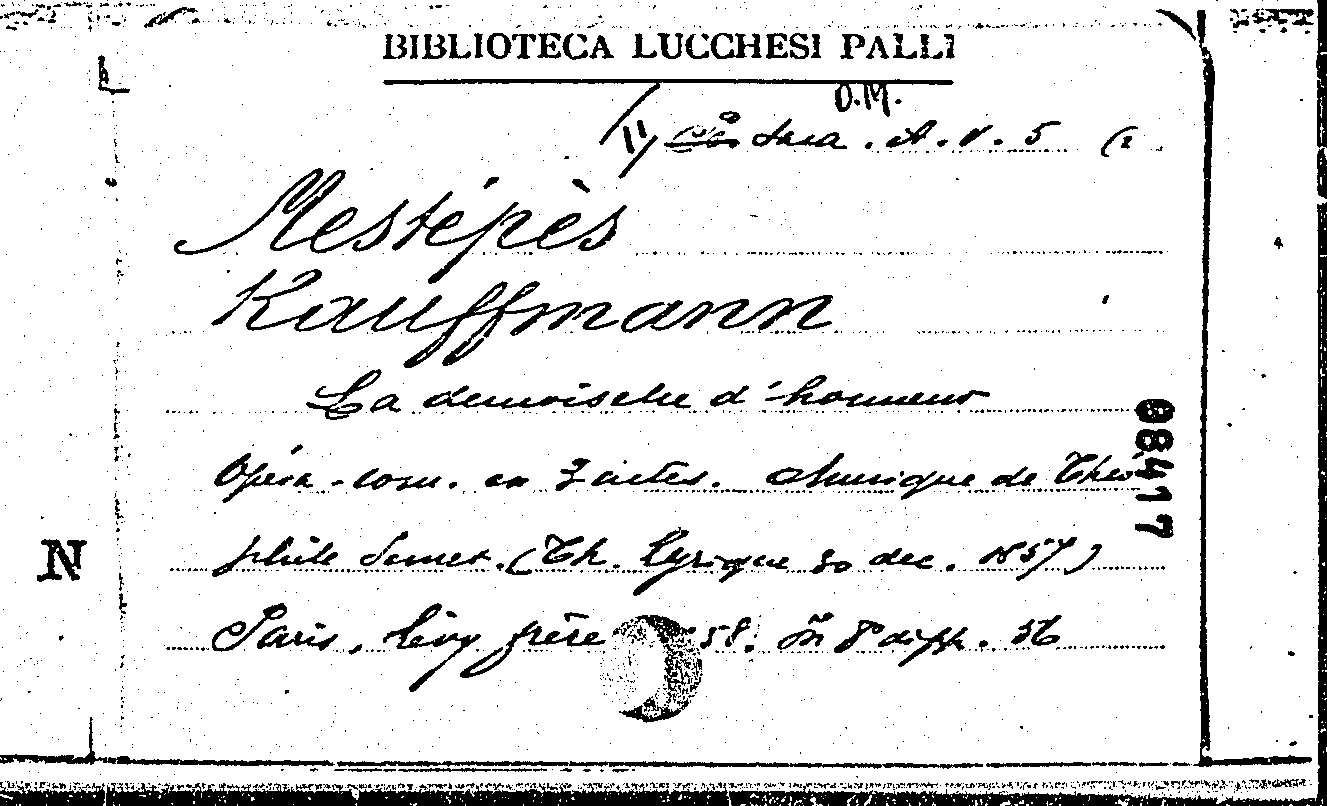 BIBLIOTECA LUCCHESI PALLI
O.M.
Sala. A. V. 5 (2.
Mestépès
Kauffmann
La demoiselle d'honneur
Opéra-com. en 3 actes. Musique de Théo
phile Semet. (Th. Lyrique 30 dec. 1857)
Paris, Lévy frère 58. in 8° di pp. 56
08417
N